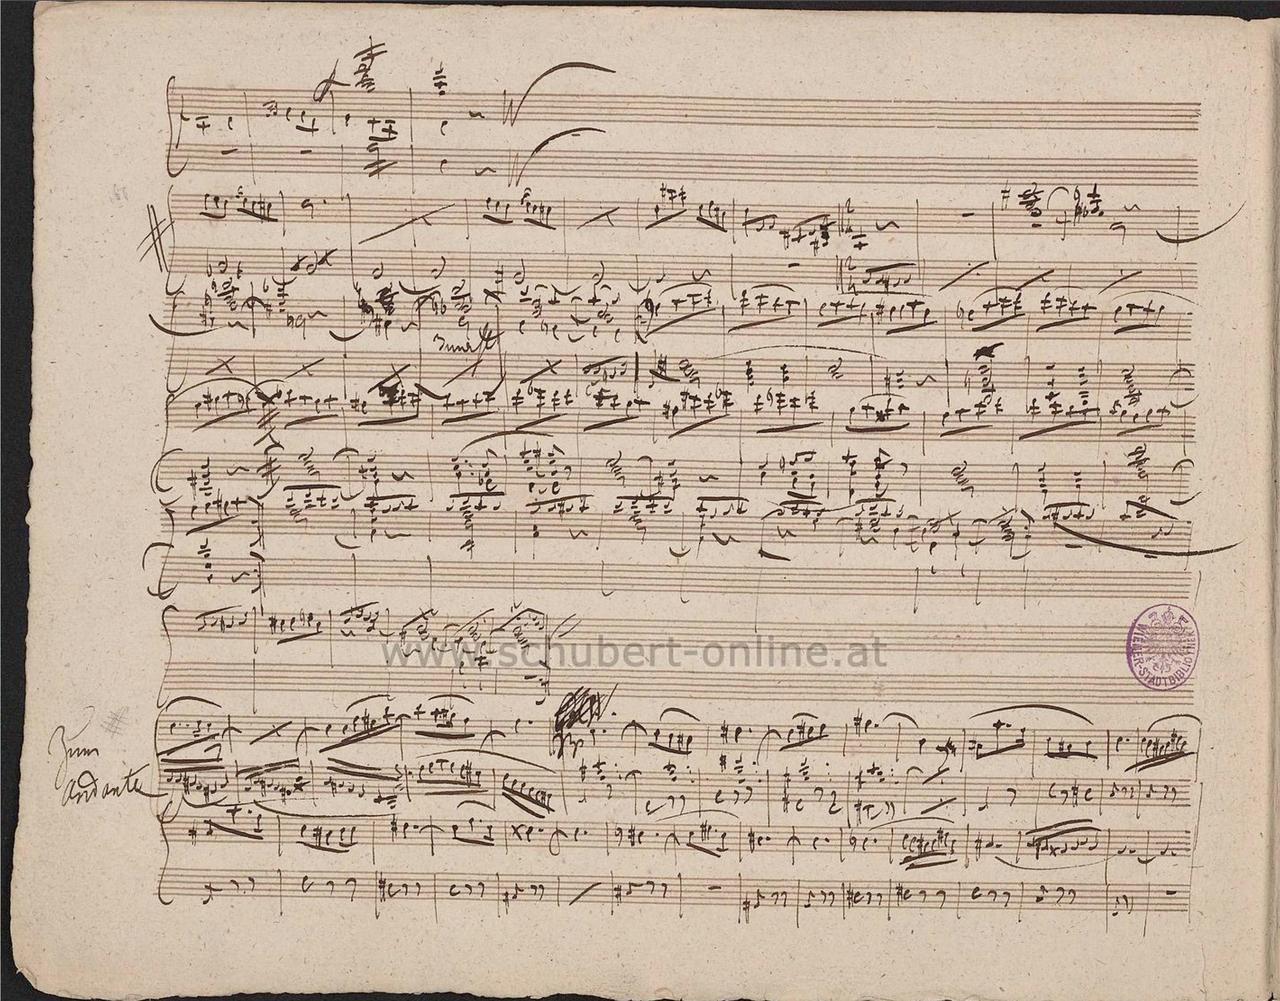 www.schubert-online.at
WIENER-STADTBIBLIOTHEK
Zum
Andante